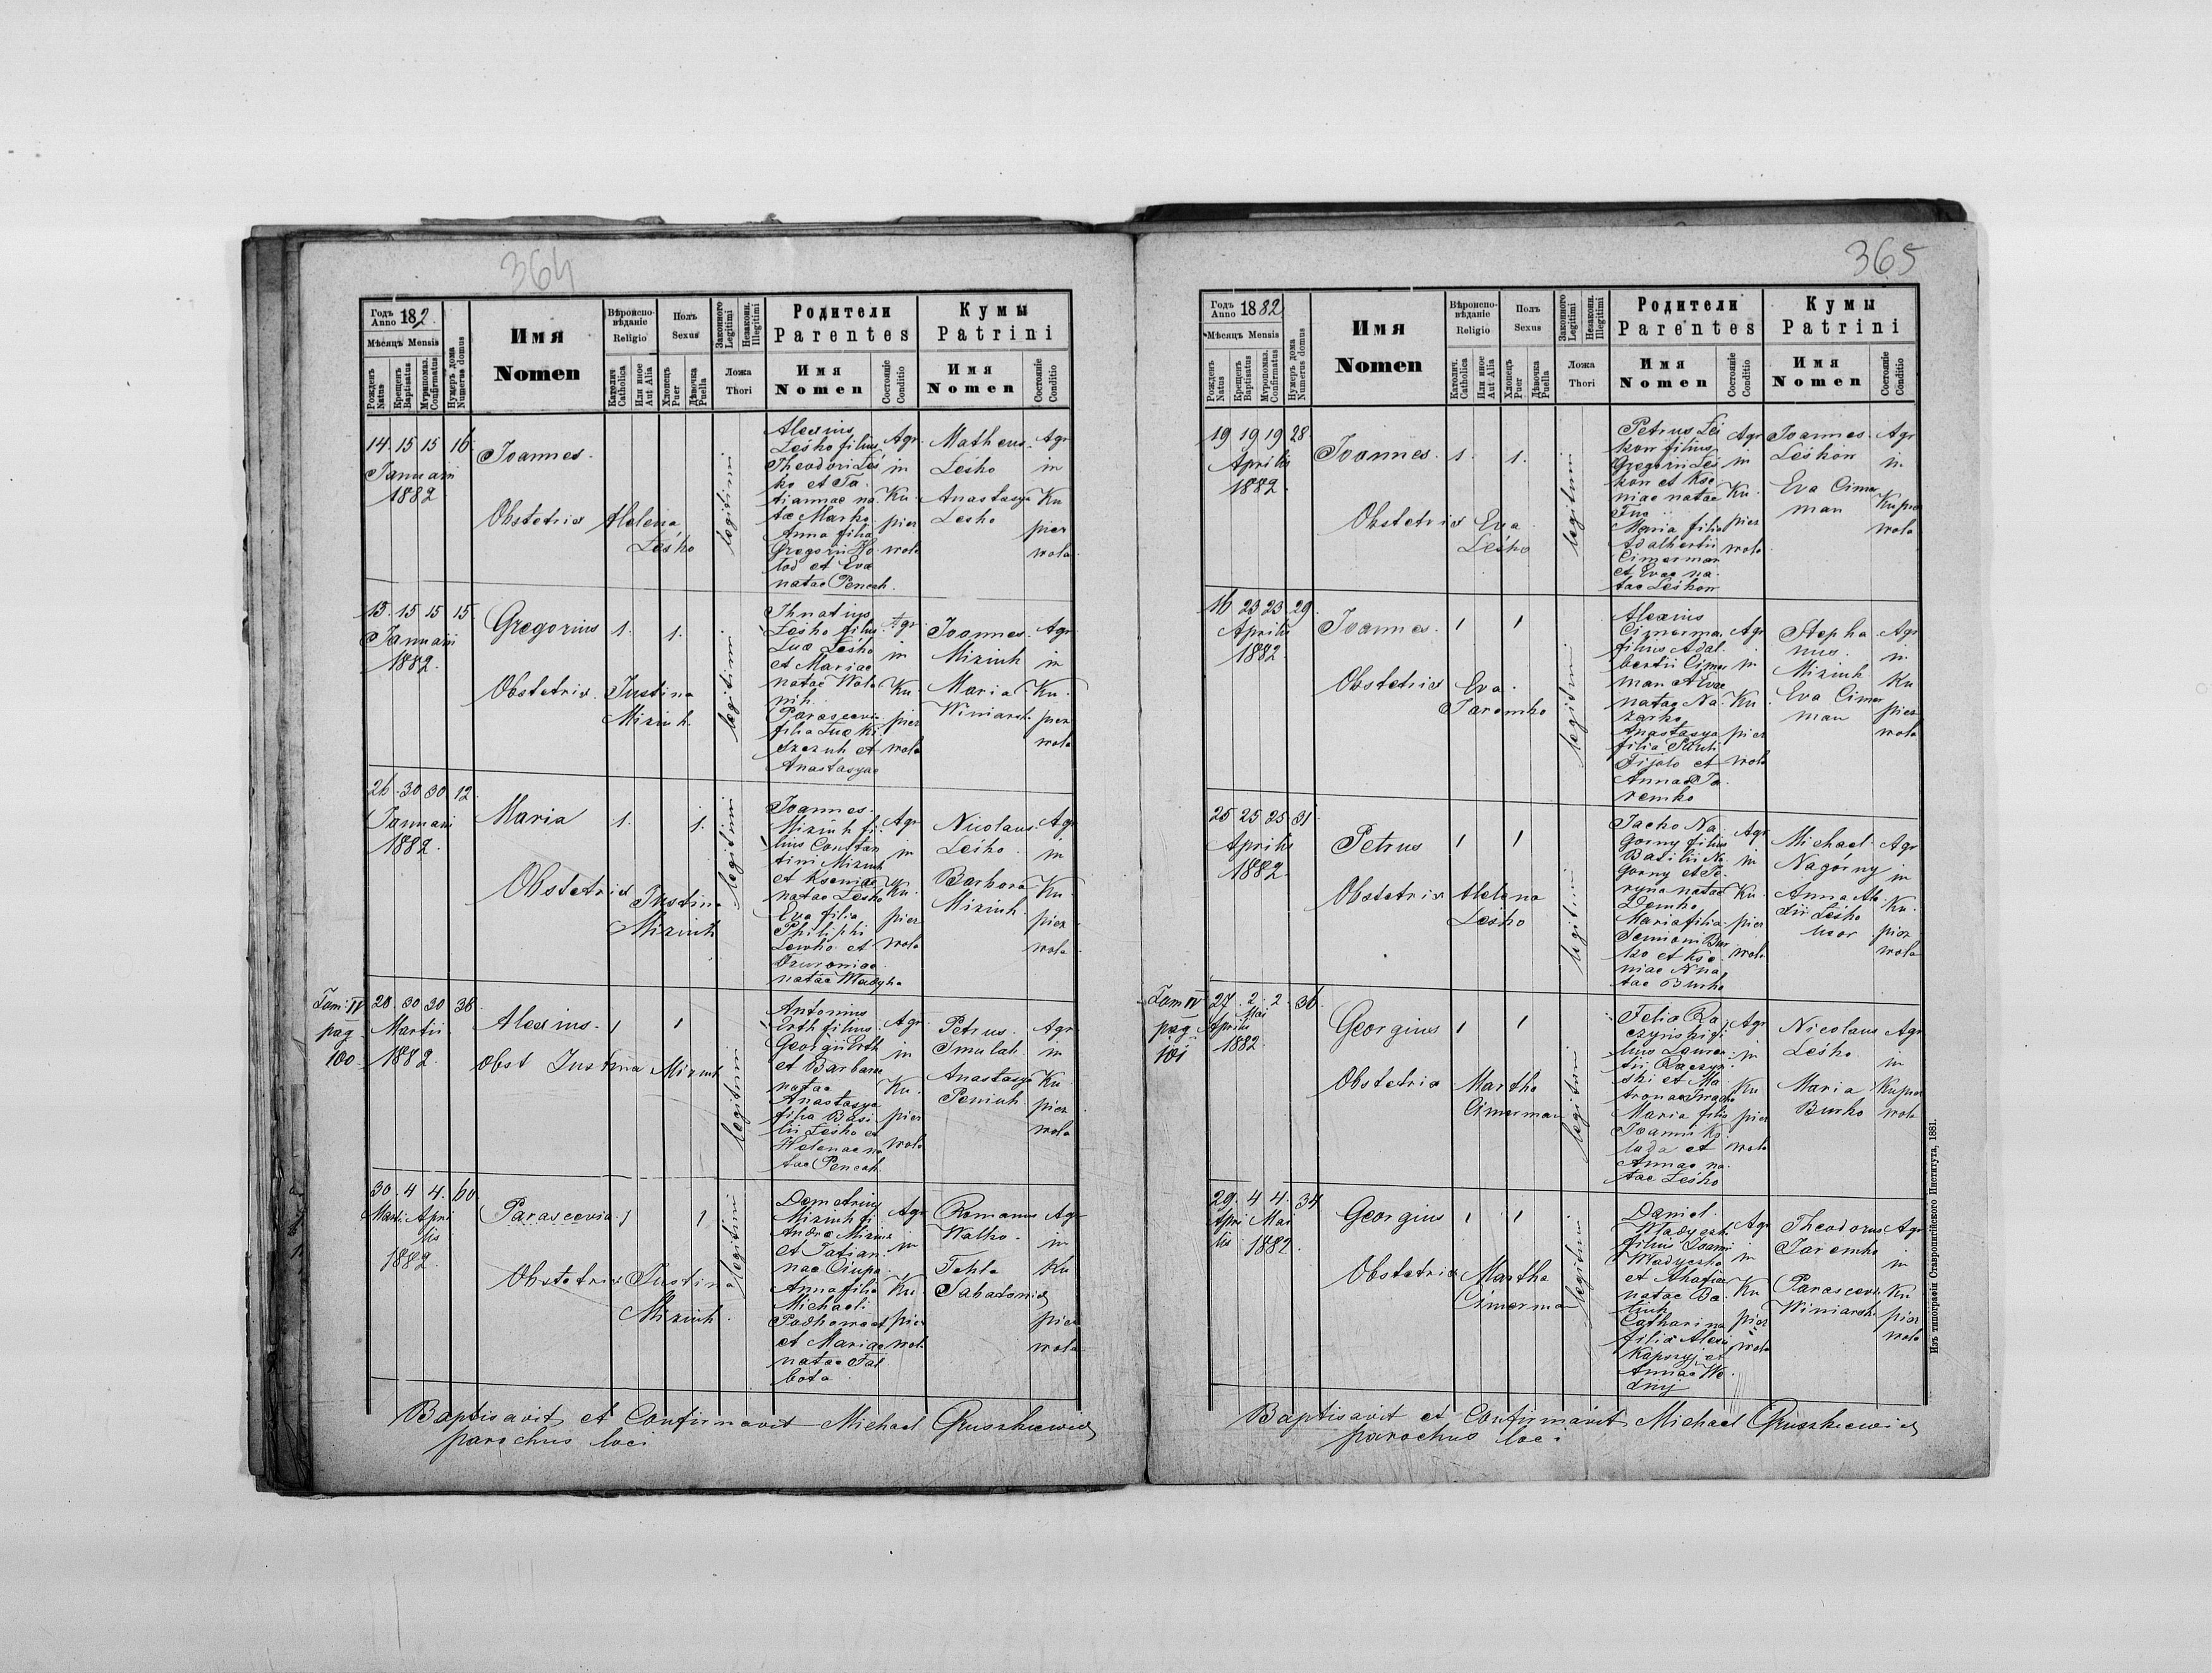 364
Годъ Anno 182.
Мѣсяцъ Mensis
Рожденъ Natus
Крещенъ Baptisatus
Муропомаз. Confirmatus
Нумеръ дома Numerus domus
Имя
Nomen
Вѣроиспо-
вѣданіе
Religio
Католич. Catholica
Или иное Aut Alia
Полъ
Sexus
Хлопецъ Puer
Дѣвочка Puella
Законного Legitimi
Незаконн. Illegitimi
Ложа
Thori
Родители
Parentes
Имя
Nomen
Состояніе Conditio
Кумы
Patrini
Имя
Nomen
Состояніе Conditio
14. 15 15 16.
Januarii
1882
Joannes.
Obstetrix Helena
Leśko
legitimi
Alexius
Leśko filius
Theodori Leś
ko et Ta
tiannae na
tae Marko
Anna filia
Gregorii Ho
lod et Eva
natae Pencak.
Agr.
in
Ku
pier
wola
Matheus
Leśko
Anastasya
Lesko
Agr
in
Ku
pier
wola.
15. 15 15 15
Januarii
1882.
Gregorius 1. 1.
Obstetrix. Justina
Miziuk
legitimi
Ihnatius
Leśko filius
Luc Leśko
et Mariae
natae Wolo
nik.
Parascevia
filia Luc Ki
szczuk et
Anastasyae
Agr.
in
Ku
pier
wola
Joannes.
Miziuk
Maria
Winiarsk.
Agr
in
Ku.
pier
wola
26. 30 30 12.
Januarii
1882.
Maria 1. 1.
Obstetrix Justina
Miziuk
legitimi
Joannes.
Miziuk fi
lius Constan
tini Miziuk
et Kseniae
natae Lesko
Eva filia
Philiphi
Lewko et
natae Wladyka
Agr
in
Ku.
pier
wola
Nicolaus.
Leśko.
Barbara
Miziuk.
Agr
in
Ku.
pier
wola.
Tom: IV
pag
100
28. 30 30 38.
Martii.
1882.
Alexius. 1 1
Obst Justina Miziuk
legitimi
Antonius
Erth filius
Georgii Erth
et Barbara
natae
Anastasya
filia Basi
lii Leśko et
Helenae na
tae Pencak.
Agr.
in
Ku.
pier
wola
Petrus.
Smulak.
Anastasya
Peniuk.
Agr.
in
Ku
pier
wola.
30. 4 4. 60
Marti. Apri
lis
1882.
Parascevia. 1 1
Obstetrix Justina
Miziuk.
legitimi
Demetrius
Miziuk fi
Andre Miziuk
et Tatian
nae Ciupa.
Anna filia
Michaeli
et Mariae
natae Tal
bota
Agr
in
Ku
pier
wola
Romanus
Walko.
Tekla
Sabadowicz
Agr
in
Ku
pier
wola
Baptisavit et Confirmavit Michael Gruszkiewicz
parochus loci
365
Годъ Anno 1882
Мѣсяцъ Mensis
Рожденъ Natus
Крещенъ Baptisatus
Муропомаз. Confirmatus
Нумеръ дома Numerus domus
Имя
Nomen
Вѣроиспо-
вѣданіе
Religio
Католич. Catholica
Или иное Aut Alia
Полъ
Sexus
Хлопецъ Puer
Дѣвочка Puella
Законного Legitimi
Незаконн. Illegitimi
Ложа
Thori
Родители
Parentes
Имя
Nomen
Состояніе Conditio
Кумы
Patrini
Имя
Nomen
Состояніе Conditio
19 19 19 28
Aprilis
1882.
Joannes. 1. 1.
Obstetrix Eva
Leśko
legitimi
Petrus Leś
kow filius
Gregorii Leś
kow et Kse
niae natae
Maria filia
Adalbertii
Cimerman
et Evae na
tae Leśkow
Agr
in
Ku.
pier
wola
Joannes.
Leśkow
Eva Cimer
man
Agr
in
Kupier
wola
16 23 23 29.
Aprilis
1882.
Joannes. 1 1
Obstetrix Eva.
Jaremko
legitimi
Alexius
Cimerman
filius Adal
bertii Cimer
man et Evae
natae Na
zarko
Anastasya
filia Pauli
Fijalo et
Annae Ja
remko
Agr
in
Ku
pier
wola
Stepha
nus.
Miziuk
Eva Cimer
man
Agr
in
Ku
pier
wola
25 25 25 31
Aprilis
1882.
Petrus 1 1
Obstetrix Helena
Lesko
legitimi
Jacko Na
gorny filius
Basilii Na
gorny et Pe
ryna natae
Demko
Maria filia
Semioni Bur
ko et Kse
niae N na
tae Burko
Agr
in
Ku
pier
wola
Michael.
Nagórny
Anna Ale
xii Leśko
uxor
Agr
in
Ku.
pier
wola
Tom IV
pag
101
27. 2. 2. 36.
Aprilis Mai
1882.
Georgius 1 1
Obstetrix Martha
Cimerman
legitimi
Felix Ra
czyński fi
lius Lauren
tii Raczyń
ski et Ma
Maria filia
Joannis Ko
lada et
Annae na
tae Leśko
Agr
in
Ku
pier
wola
Nicolaus
Leśko
Maria
Burko
Agr
in
Kupier
wola
29. 4 4. 34
Apri Mai
lis 1882.
Georgius 1 1
Obstetrix Martha
Cimerman
legitimi
Daniel.
Wladyczk
filius Joanni
Wladyczko
et Ahafia
natae Ba
Catharina
filia Alexi
et
Annae Wo
dnij
Agr
in
Ku
pier
wola
Theodorus
Jaremko
Parascevia
Winiarsk.
Agr
in
Ku
pier
wola
Baptisavit et Confirmavit Michael Gruszkiewicz
parochus loci
Изъ типографіи Ставропигійского Института, 1881.